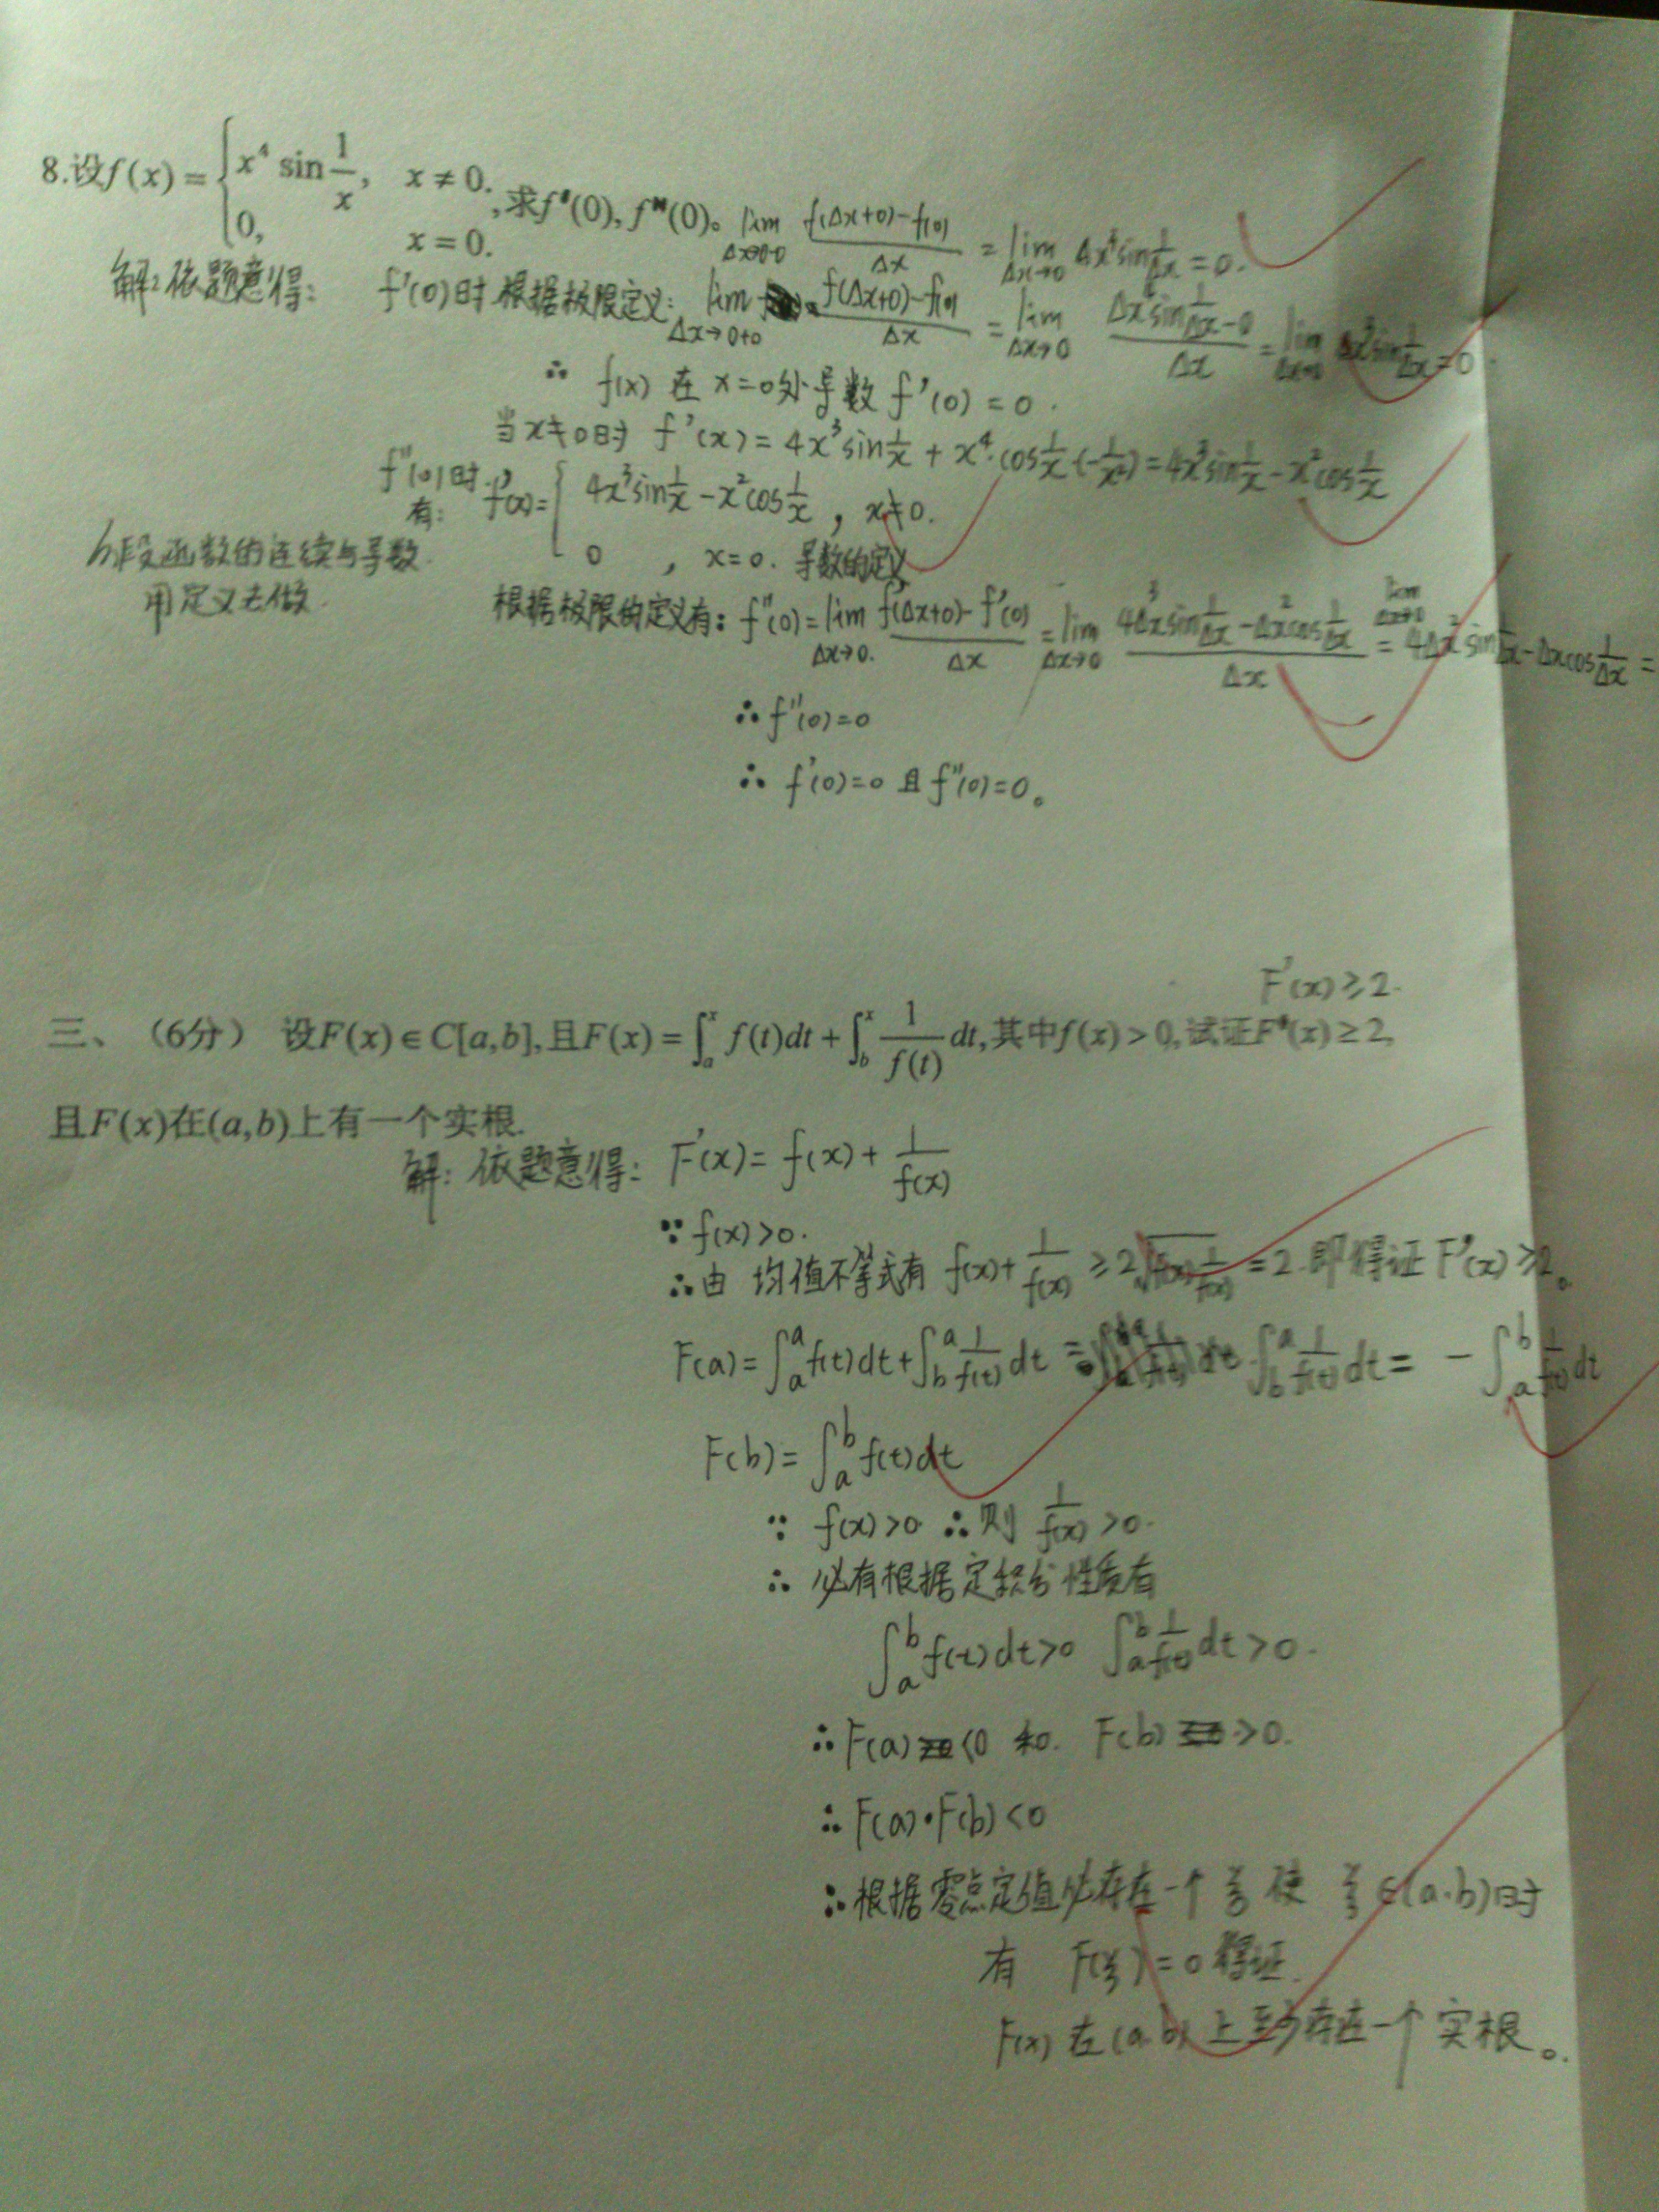 8.设f(x)={x⁴ sin 1/x, x≠0.
0, x=0.
,求f'(0), f"(0)。 lim Δx→0-0 f(Δx+0)-f(0)/Δx = lim Δx→0 Δx³sin 1/Δx = 0.
解:依题意得: f'(0)时 根据极限定义: lim Δx→0+0 f(Δx+0)-f(0)/Δx = lim Δx→0 Δx⁴sin 1/Δx -0/Δx = lim Δx→0 Δx³sin 1/Δx = 0.
∴ f(x) 在 x=0处导数 f'(0)=0.
当x≠0时 f'(x)=4x³sin 1/x + x⁴·cos 1/x·(-1/x²)=4x³sin 1/x - x²cos 1/x
f"(0)时,
有: f'(x)={4x³sin 1/x - x²cos 1/x, x≠0.
0, x=0. 导数的定义
分段函数的连续与导数
用定义去做.
根据极限的定义有: f"(0)=lim Δx→0. f'(Δx+0)-f'(0)/Δx = lim Δx→0 4Δx³sin 1/Δx - Δx²cos 1/Δx/Δx = lim Δx→0 4Δx²sin 1/Δx - Δxcos 1/Δx =
∴f"(0)=0
∴ f'(0)=0 且 f"(0)=0。
F'(x)≥2.
三、(6分) 设F(x)∈C[a,b],且F(x)=∫ₐˣ f(t)dt+∫_bˣ 1/f(t) dt,其中f(x)>0,试证F'(x)≥2,
且F(x)在(a,b)上有一个实根.
解: 依题意得: F'(x)=f(x)+1/f(x)
∵f(x)>0.
∴由 均值不等式有 f(x)+1/f(x) ≥2√f(x)·1/f(x) =2 即得证 F'(x)≥2。
F(a)=∫ₐᵃ f(t)dt+∫_bᵃ 1/f(t) dt = ∫_bᵃ 1/f(t) dt = -∫ₐᵇ 1/f(t) dt
F(b)=∫ₐᵇ f(t)dt
∵ f(x)>0 ∴则 1/f(x) >0.
∴ 必有根据定积分性质有
∫ₐᵇ f(t)dt>0 ∫ₐᵇ 1/f(t) dt>0.
∴F(a)<0 和. F(b)>0.
∴F(a)·F(b)<0
∴根据零点定值必存在一个ξ使 ξ∈(a.b)时
有 F(ξ)=0 得证.
F(x)在(a.b)上至少存在一个实根。